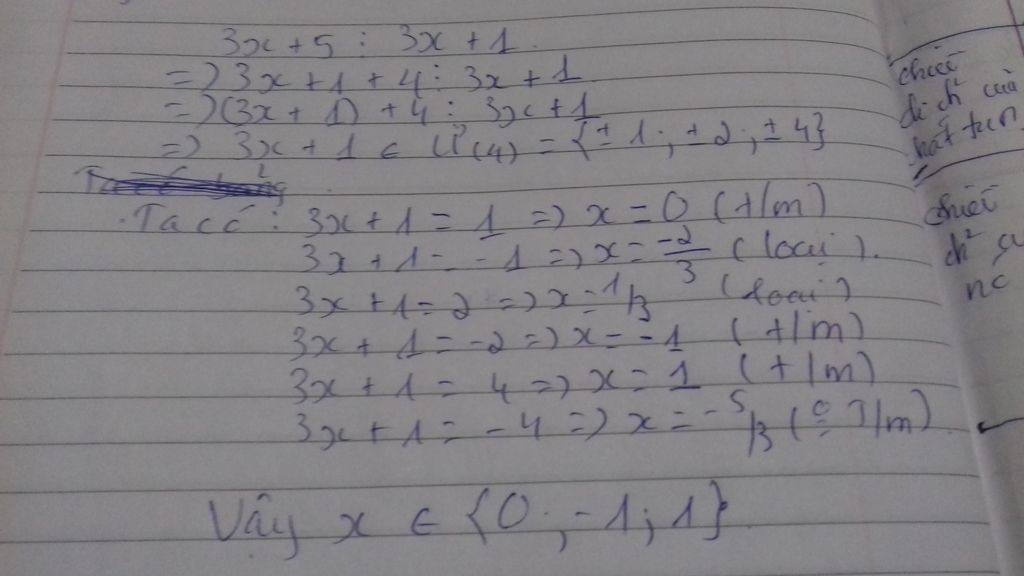 3x + 5 ⋮ 3x + 1
=> 3x + 1 + 4 ⋮ 3x + 1
=> (3x + 1) + 4 ⋮ 3x + 1
=> 3x + 1 ∈ Ư(4) = {± 1 ; ± 2 ; ± 4}
Ta có : 3x + 1 = 1 => x = 0 (t/m)
3x + 1 = - 1 => x = -2/3 (loại).
3x + 1 = 2 => x = 1/3 (loại)
3x + 1 = -2 => x = -1 (t/m)
3x + 1 = 4 => x = 1 (t/m)
3x + 1 = - 4 => x = -5/3 (t/m)
Vậy x ∈ {0 ; -1 ; 1}
chiết
của
chiết